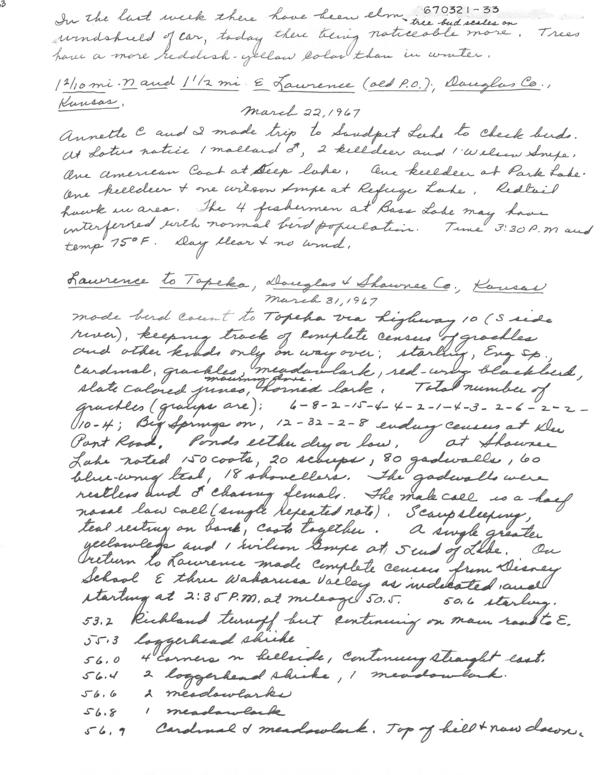 3
670321-33
In the last week there have been elm tree bud scales on
windshield of car, today there being noticeable more. Trees
have a more reddish-yellow color than in winter.
1 2/10 mi. N and 1 1/2 mi. E Lawrence (old P.O.), Douglas Co.,
Kansas.
March 22, 1967
Annette C and I made trip to Sandpit Lake to check birds.
At Lotus notice 1 mallard ♂, 2 killdeer and 1 Wilson Snipe.
One American Coot at Deep lake. One killdeer at Park Lake.
One killdeer + one wilson snipe at Refuge Lake. Redtail
hawk in area. The 4 fishermen at Bass Lake may have
interferred with normal bird population. Time 3:30 P.M and
temp 75°F. Day clear & no wind.
Lawrence to Topeka, Douglas & Shawnee Co., Kansas
March 31, 1967
made bird count to Topeka via highway 10 (S side
river), keeping track of complete census of grackles
and other kinds only on way over; starling, Eng sp.,
cardinal, grackles, meadowlark, red-wing blackbird,
slate colored junco, mourning dove, horned lark. Total number of
grackles (groups are): 6-8-2-15-4-4-2-1-4-3-2-6-2-2-
10-4; Big Springs on, 12-32-2-8 ending census at Du
Pont Road. Ponds either dry or low. At Shawnee
Lake noted 150 coots, 20 scaups, 80 gadwalls, 60
blue-wing teal, 18 shovellers. The gadwalls were
restless and ♂ chasing female. The male call is a half
nasal low call (single repeated note). Scaup sleeping,
teal resting on bank, coots together. A single greater
yellowlegs and 1 wilson Snipe at S end of Lake. On
return to Lawrence made complete census from Disney
School E thru Wakarusa Valley as indicated and
starting at 2:35 P.M. at mileage 50.5. 50.6 starling.
53.2 Richland turnoff but continuing on main road to E.
55.3 loggerhead shrike
56.0 4 corners n hillside, continuing straight east.
56.4 2 loggerhead shrike, 1 meadowlark.
56.6 2 meadowlarks
56.8 1 meadowlark
56.9 Cardinal & meadowlark. Top of hill & now down.